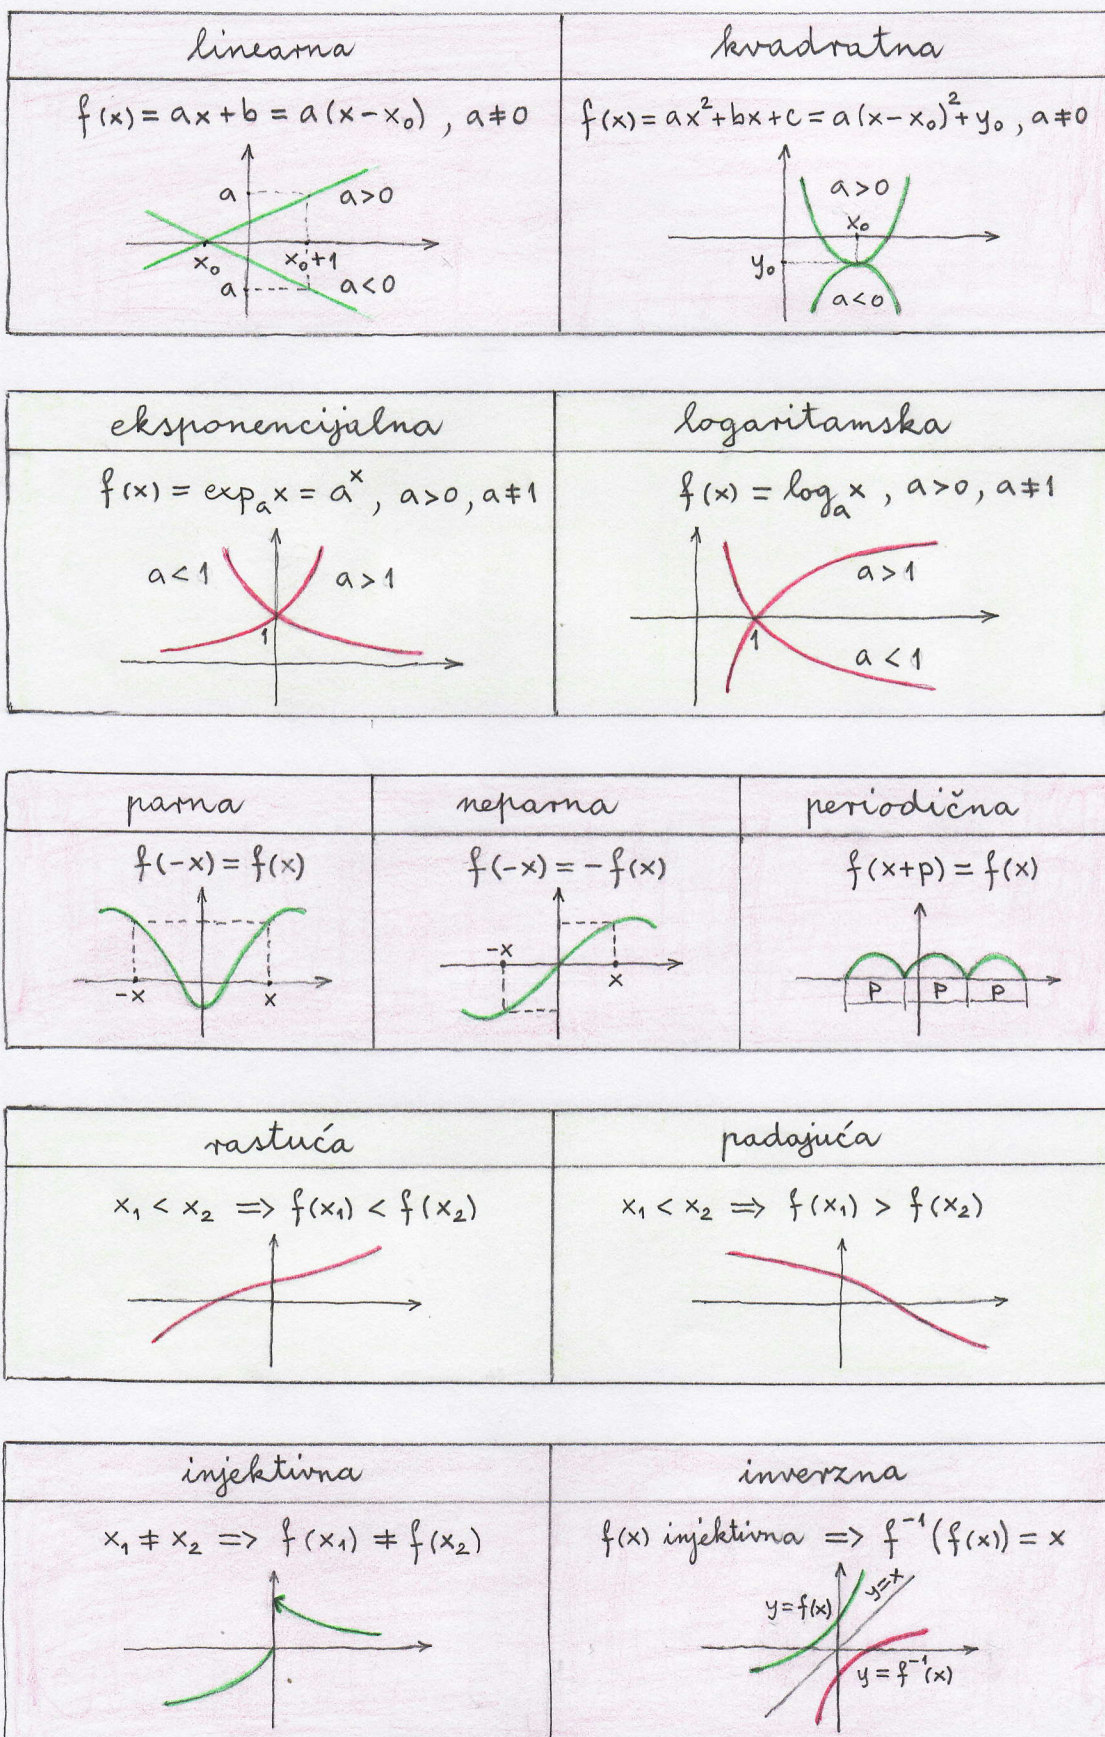 linearna
f(x) = ax + b = a(x-x₀) , a≠0
a
a>0
x₀
x₀+1
a
a<0
kvadratna
f(x) = ax²+bx+c = a(x-x₀)²+y₀ , a≠0
a>0
x₀
y₀
a<0
eksponencijalna
f(x) = expₐx = aˣ , a>0, a≠1
a<1
a>1
1
logaritamska
f(x) = logₐx , a>0, a≠1
a>1
1
a<1
parna
f(-x) = f(x)
-x
x
neparna
f(-x) = -f(x)
-x
x
periodična
f(x+p) = f(x)
p
p
p
rastuća
x₁ < x₂ => f(x₁) < f(x₂)
padajuća
x₁ < x₂ => f(x₁) > f(x₂)
injektivna
x₁ ≠ x₂ => f(x₁) ≠ f(x₂)
inverzna
f(x) injektivna => f⁻¹(f(x)) = x
y=f(x)
y=x
y=f⁻¹(x)